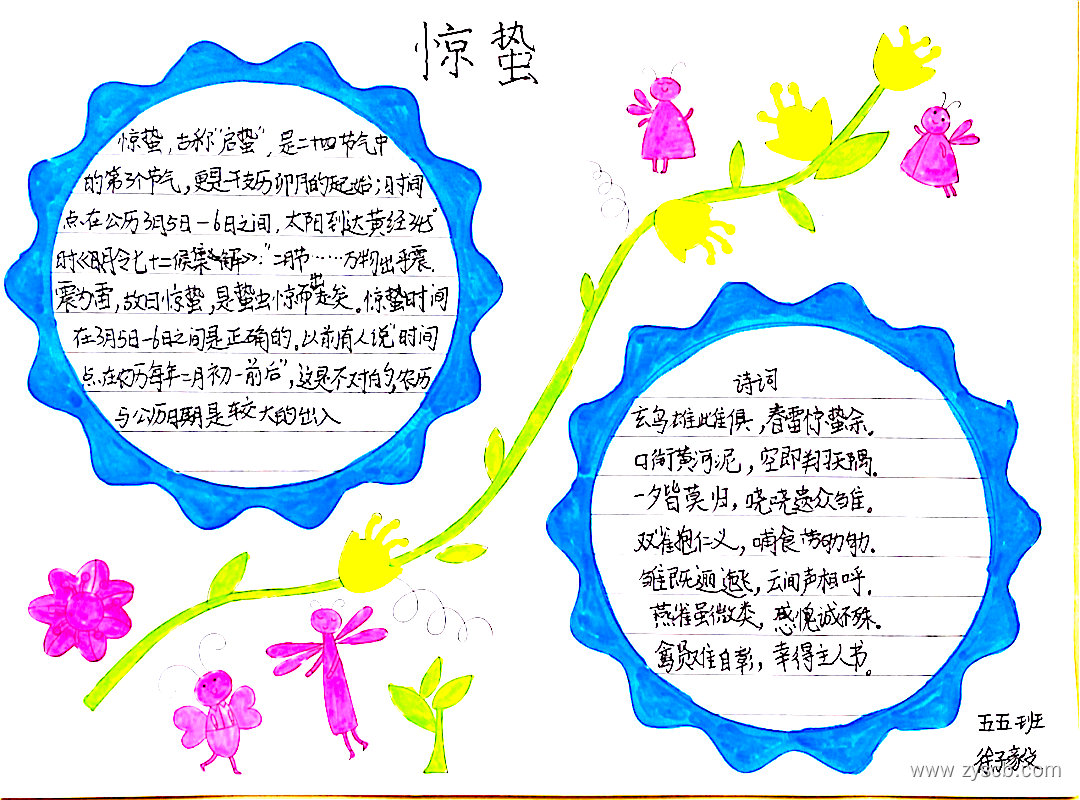 惊蛰
惊蛰,古称"启蛰",是二十四节气中
的第3个节气,更是干支历卯月的起始;时间
点在公历3月5日—6日之间,太阳到达黄经345°
时《月令七十二候集解》:"二月节……万物出乎震,
震为雷,故曰惊蛰,是蛰虫惊而出走矣。惊蛰时间
在3月5日—6日之间是正确的。以前有人说"时间
点在农历每年二月初一前后",这是不对的,农历
与公历日期是有较大的出入
诗词
玄鸟雄雌俱,春雷惊蛰余。
口衔黄河泥,空即翔天隅。
一夕皆莫归,哓哓遗众雏。
双雀抱仁义,哺食劳劬劬。
雏既逦迤飞,云间声相呼。
燕雀虽微类,感愧诚不殊。
禽贤难自彰,幸得主人书。
五五班
徐子毅
www.zyscb.com